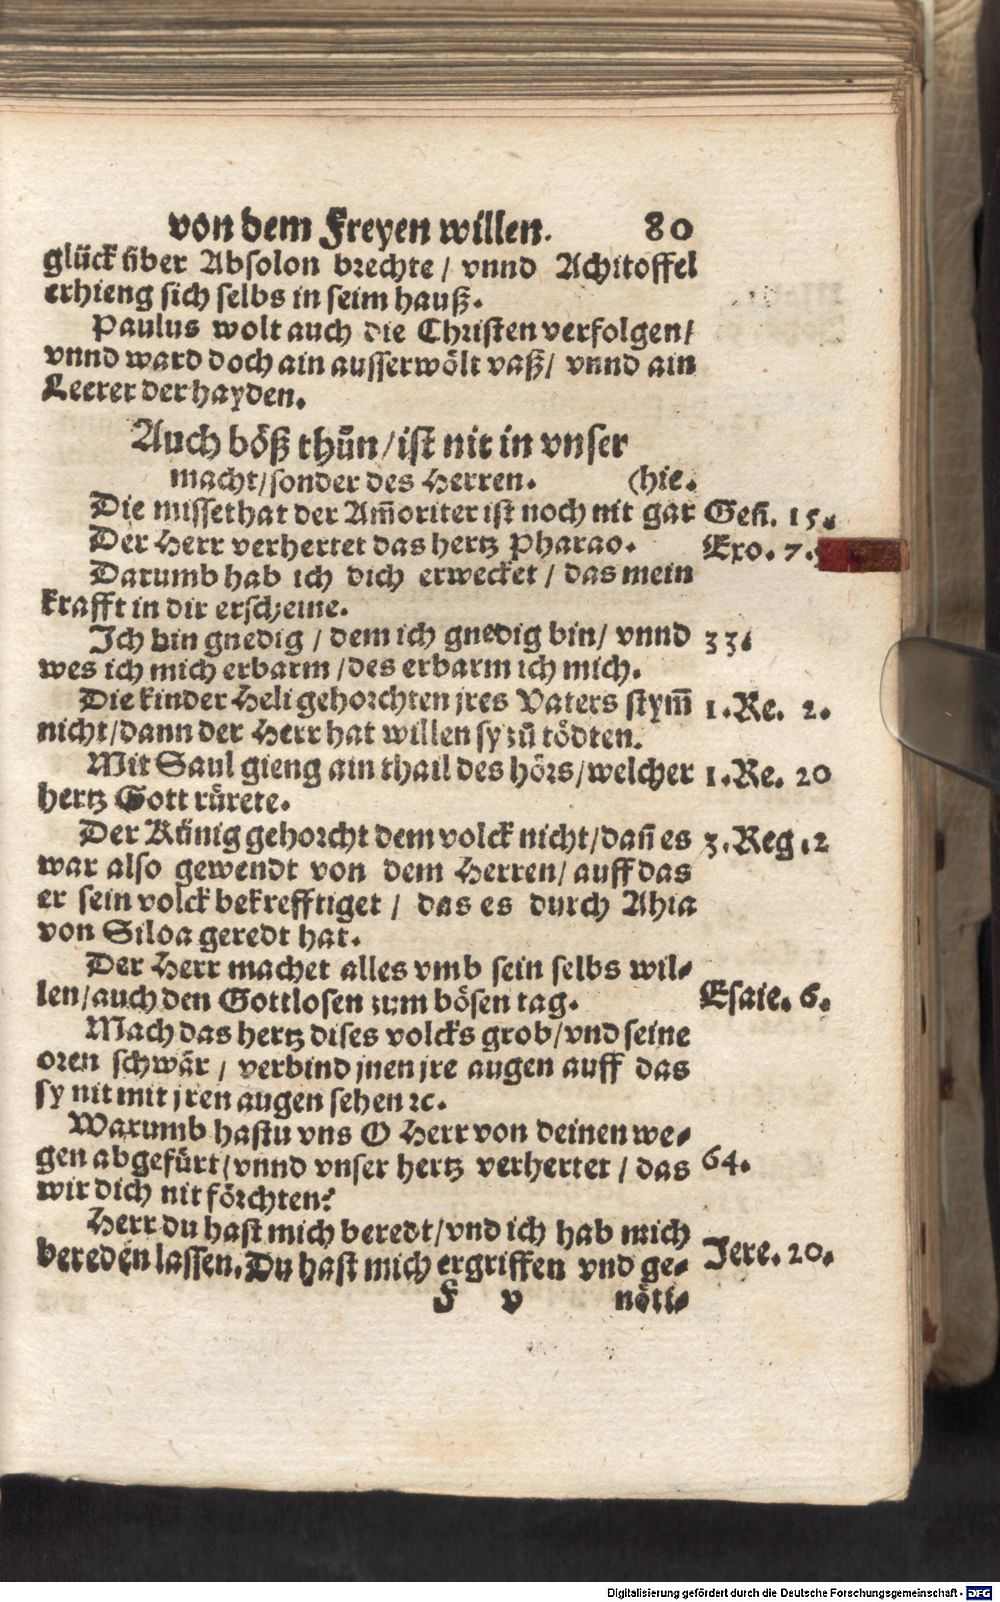 von dem Freyen willen. 80
glück über Absolon brechte / vnnd Achitoffel
erhieng sich selbs in seim hauß.
Paulus wolt auch die Christen verfolgen /
vnnd ward doch ain ausserwölt vaß / vnnd ain
Leerer der hayden.
Auch böß thůn / ist nit in vnser
macht / sonder des Herren. (hie.
Die missethat der Am̃oriter ist noch nit gar Gen̄. 15.
Der Herr verhertet das hertz Pharao. Exo. 7.
Darumb hab ich dich erwecket / das mein
krafft in dir erscheine.
Ich bin gnedig / dem ich gnedig bin / vnnd 33.
wes ich mich erbarm / des erbarm ich mich.
Die kinder Heli gehorchten jres Vaters stym̃ 1. Re. 2.
nicht / dann der Herr hat willen sy zů tödten.
Mit Saul gieng ain thail des hörs / welcher 1. Re. 20
hertz Gott růrete.
Der Künig gehorcht dem volck nicht / dañ es 3. Reg. 12
war also gewendt von dem Herren / auff das
er sein volck bekrefftiget / das es durch Ahia
von Siloa geredt hat.
Der Herr machet alles vmb sein selbs wil⸗
len / auch den Gottlosen zum bösen tag. Esaie. 6.
Mach das hertz dises volcks grob / vnd seine
oren schwär / verbind jnen jre augen auff das
sy nit mit jren augen sehen ꝛc.
Warumb hastu vns O Herr von deinen we⸗
gen abgefürt / vnnd vnser hertz verhertet / das 64.
wir dich nit förchten?
Herr du hast mich beredt / vnd ich hab mich
bereden lassen. Du hast mich ergriffen vnd ge⸗ Jere. 20.
F v nöti⸗
Digitalisierung gefördert durch die Deutsche Forschungsgemeinschaft - DFG